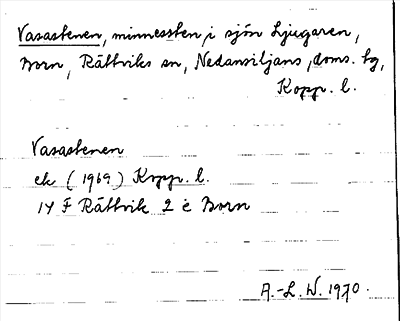 Vasastenen, minnessten, i sjön Ljugaren,
Born, Rättviks sn, Nedansiljans doms. tg,
Kopp. l.
Vasastenen
ek (1969) Kopp. l.
14 F Rättvik 2 c Born
A.-L. W. 1970.